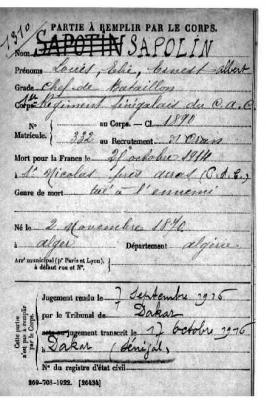 PARTIE À REMPLIR PAR LE CORPS.
1310
Nom SAPOTIN SAPOLIN
Prénoms Louis, Elie, Ernest Albert
Grade Chef de Bataillon
Corps 1er Régiment Sénégalais du C.A.C.
N° au Corps. — Cl. 1890
Matricule. 332 au Recrutement Oran
Mort pour la France le octobre 1914
à St Nicolas près Arras (P.A.E.)
Genre de mort tué à l'ennemi
Né le 2 Novembre 1870
à Alger Département Algérie
Arrt municipal (pr Paris et Lyon),
à défaut rue et N°.
Cette partie
n'est pas à remplir
par le Corps.
Jugement rendu le 7 Septembre 1916
par le Tribunal de Dakar
jugement transcrit le 17 octobre 1916
à Dakar (Sénégal)
N° du registre d'état civil
269-708-1922. [26434]